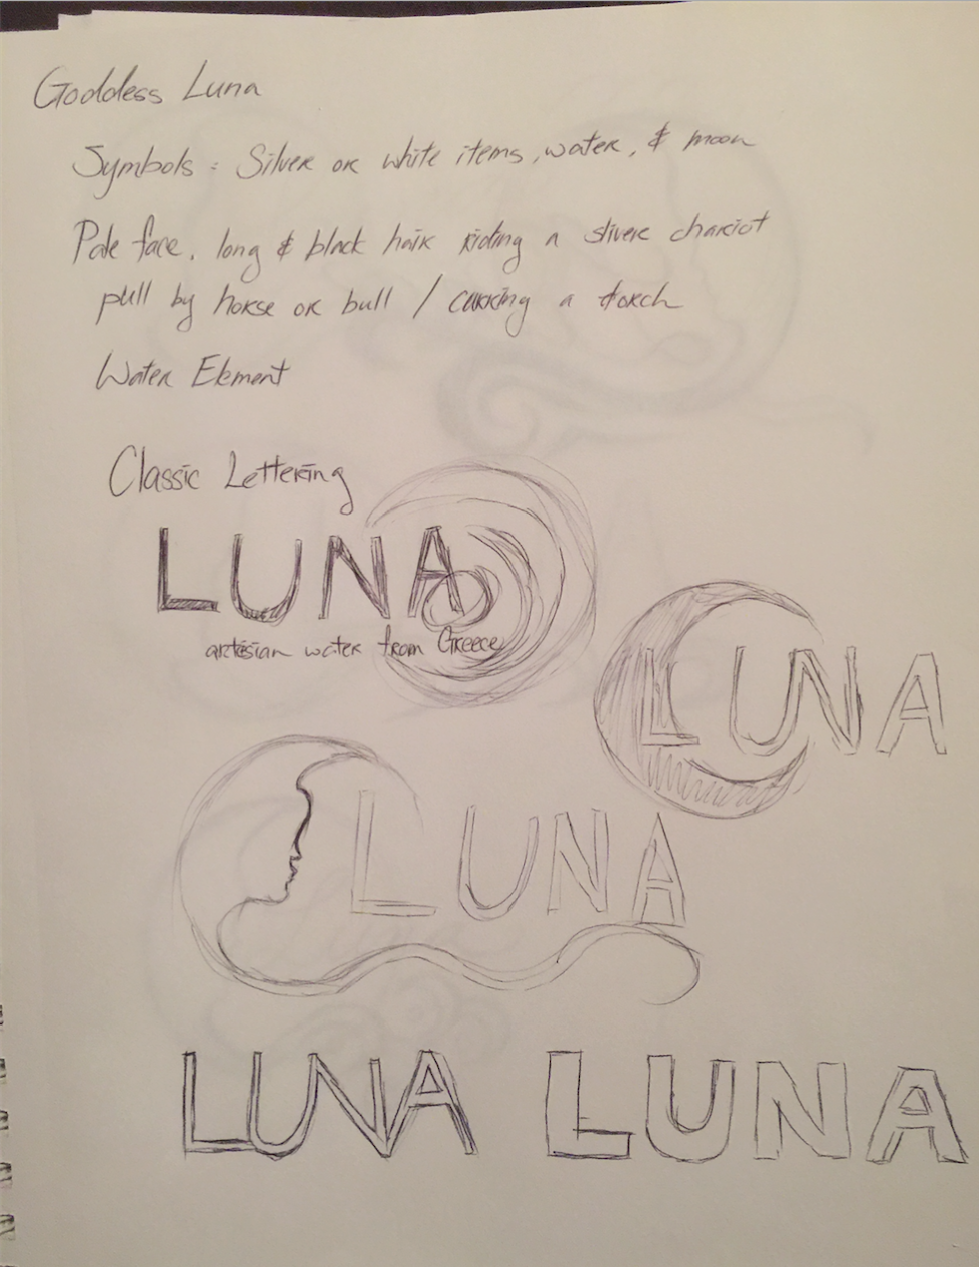 Goddess Luna
Symbols : Silver or white items, water, & moon
Pale face, long & black hair riding a sliver chariot
pull by horse or bull / carring a torch
Water Element
Classic Lettering
LUNA
artesian water from Greece
LUNA
LUNA
LUNA LUNA